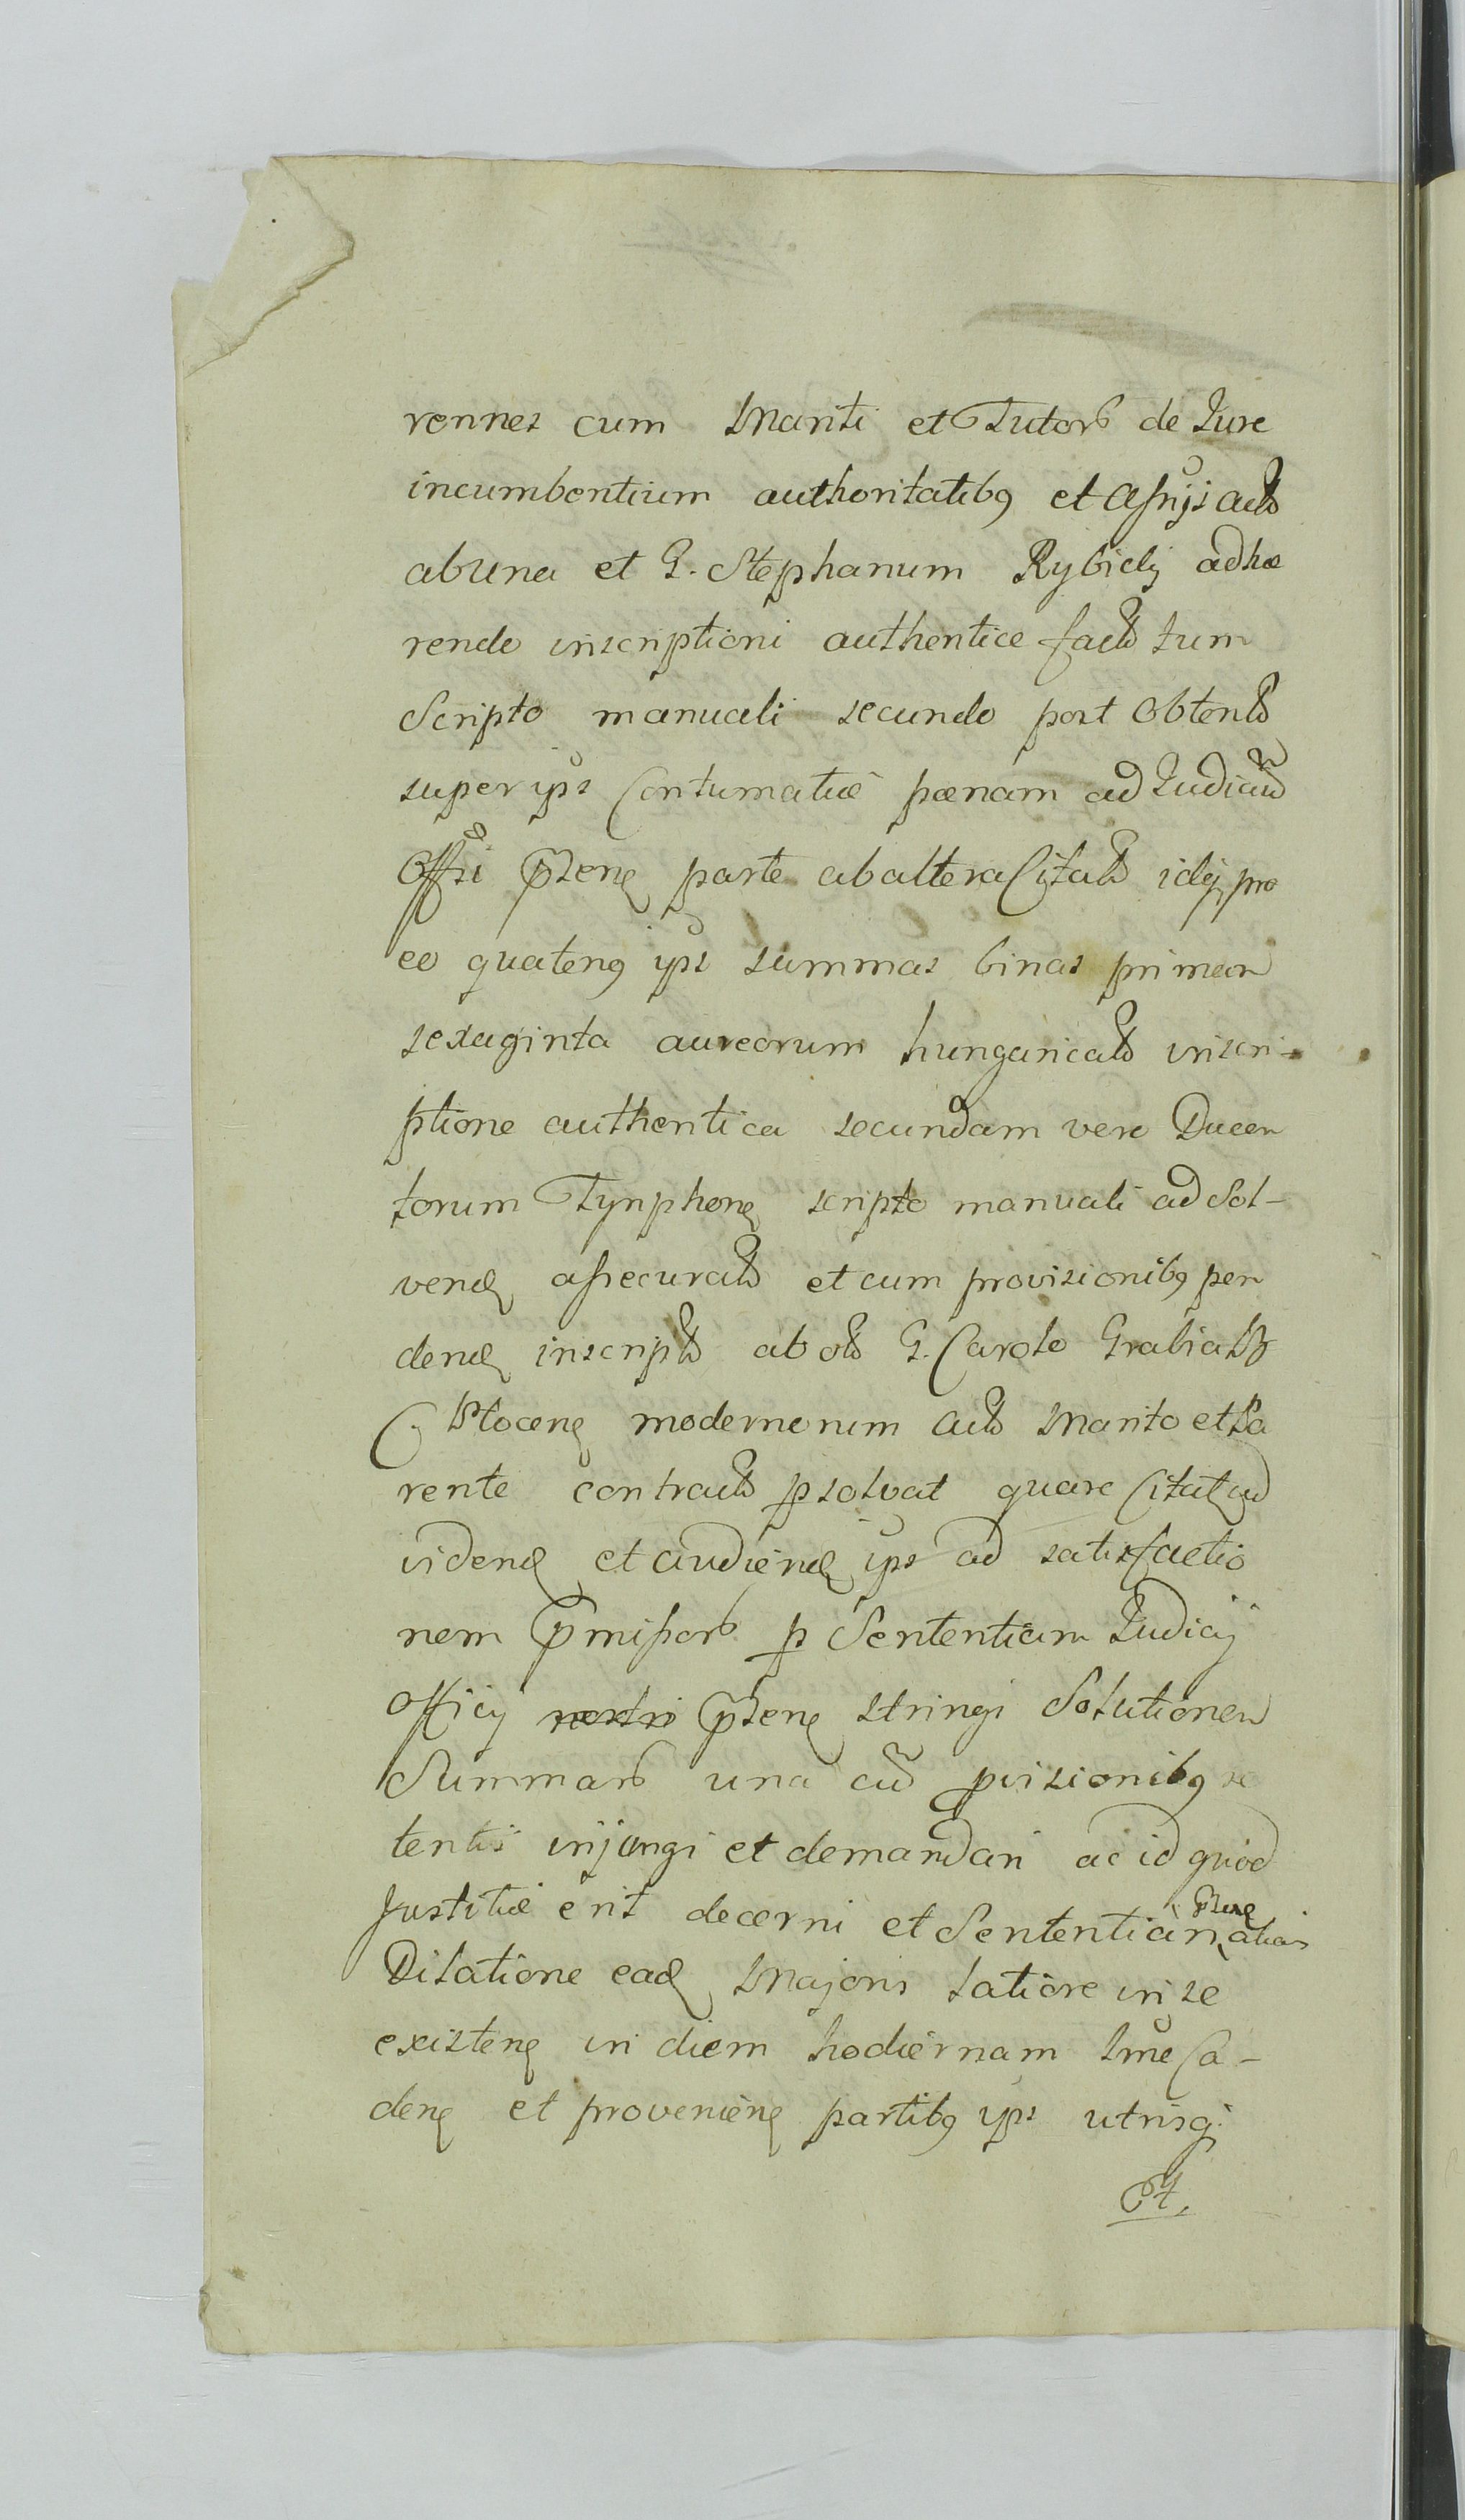 rennes cum Mariti et Tutorũ de Jure
incumbentium authoritatibq et assijs actõ
ab una et G. Stephanum Rybicky adhæ
rendo inscriptioni authentice factõ tum
Scripto manuali secundo post obtentõ
super ips Contumatiæ pænam ad Judiciũ
Offsi pñtene parte ab altera Citatõ idq pro
eo quatenq ips summas binas primam
sexaginta aureorum hungaricalõ inscri-
ptione authentica secundam vero Ducen
torum Tynphone scripto manuali ad Sol-
vend assecuratõ et cum provisionibq pen
dend inscriptõ ab olõ G. Carolo Grabia
C Plocene modernorum actõ Marito et Pa
rente contractõ psolvat quare Citat ad
vidend et audiend ips ad satisfactio
nem pmissorũ p Sententiam Judicij
Officij nostri pñtene stringi Solutionem
Summarũ una cũ pvisionibq re
tentis injungi et demandari ac id quod
Justitiæ erit decerni et Sententiari pñtene alias
Dilatione ead Majori latiore in se
existene in diem hodiernam Ca-
dene et proveniene partibq ips utrisq
Pt.